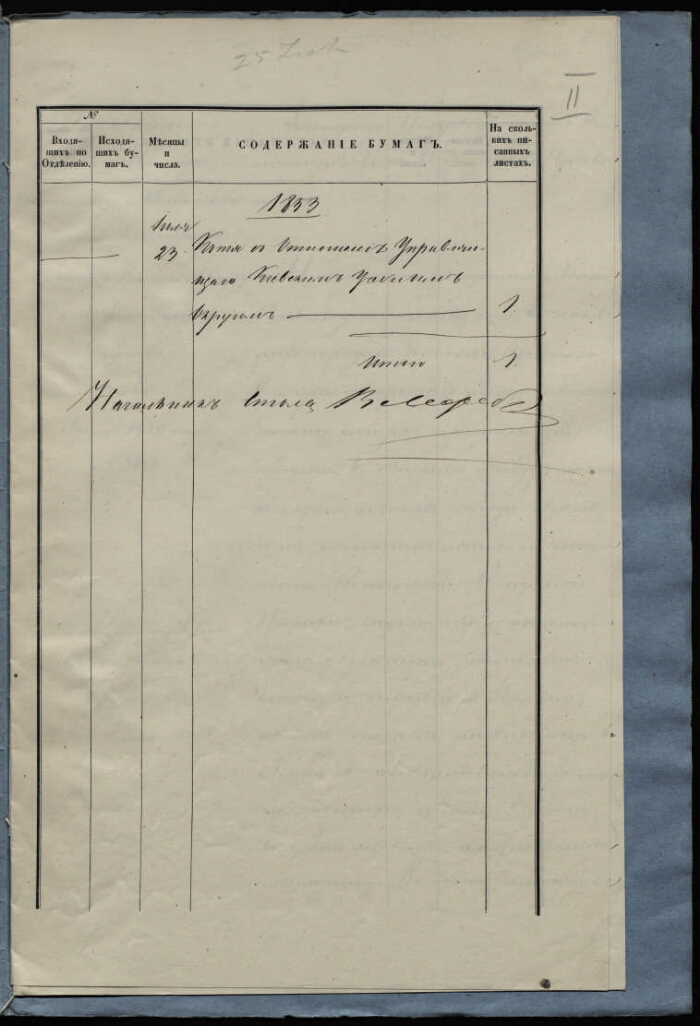 II
№
Входящихъ по Отдѣленію.
Исходящихъ бумагъ.
Мѣсяцы и числа.
СОДЕРЖАНІЕ БУМАГЪ.
На сколькихъ писанныхъ листахъ.
1853
23
Копія съ Управляю-
щаго Кіевскимъ Учебнымъ
Округомъ 1
Итого 1
Начальникъ Стола